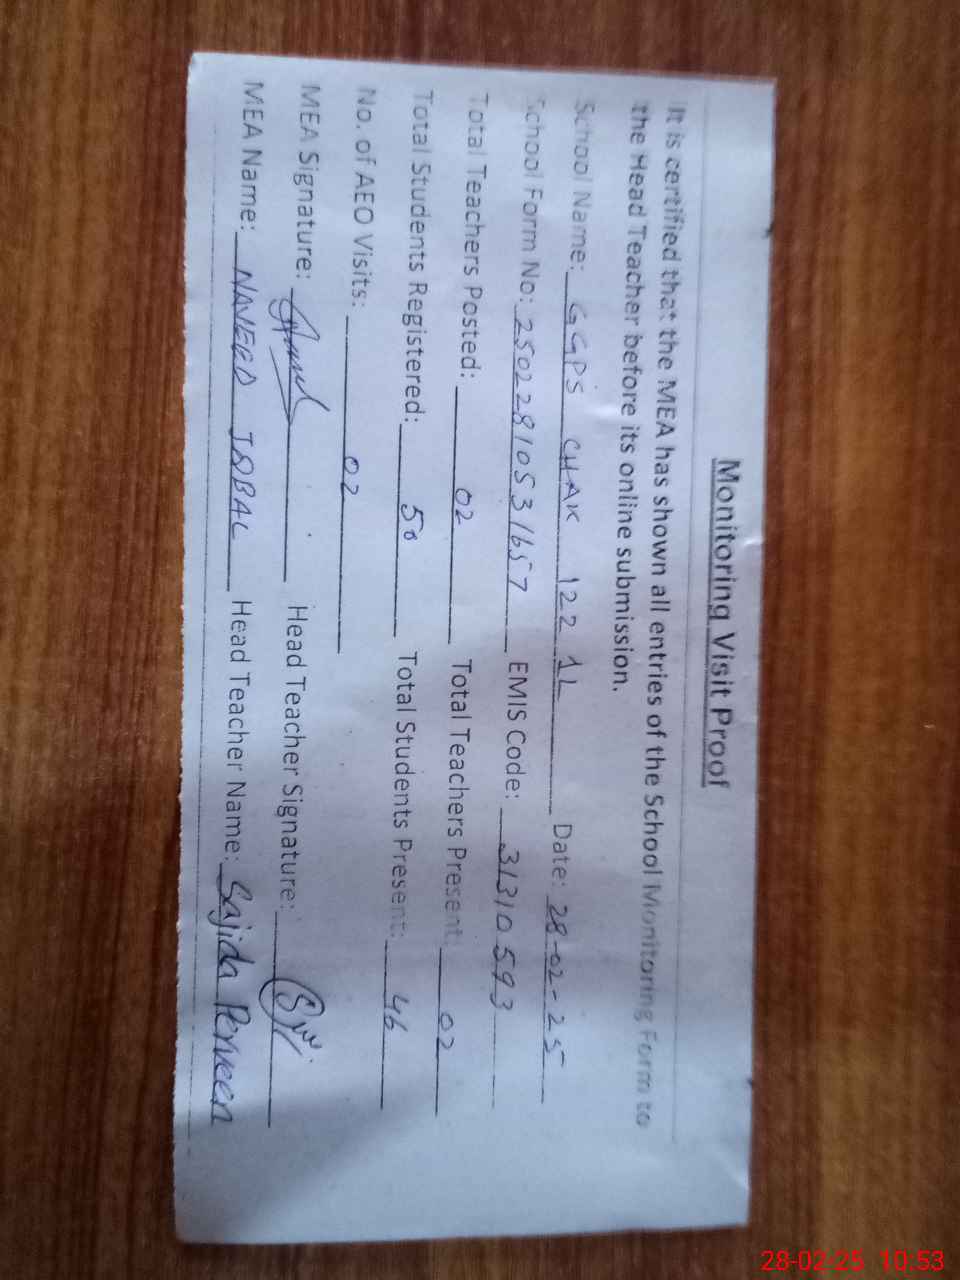 Monitoring Visit Proof
It is certified that the MEA has shown all entries of the School Monitoring Form to
the Head Teacher before its online submission.
School Name: GGPS CHAK 122 1L Date: 28-02-25
School Form No: 25022810531657 EMIS Code: 31310593
Total Teachers Posted: 02 Total Teachers Present: 02
Total Students Registered: 50 Total Students Present: 46
No. of AEO Visits: 02
MEA Signature: Head Teacher Signature:
MEA Name: NAVEED IQBAL Head Teacher Name: Sajida Perveen
28-02-25 10:53